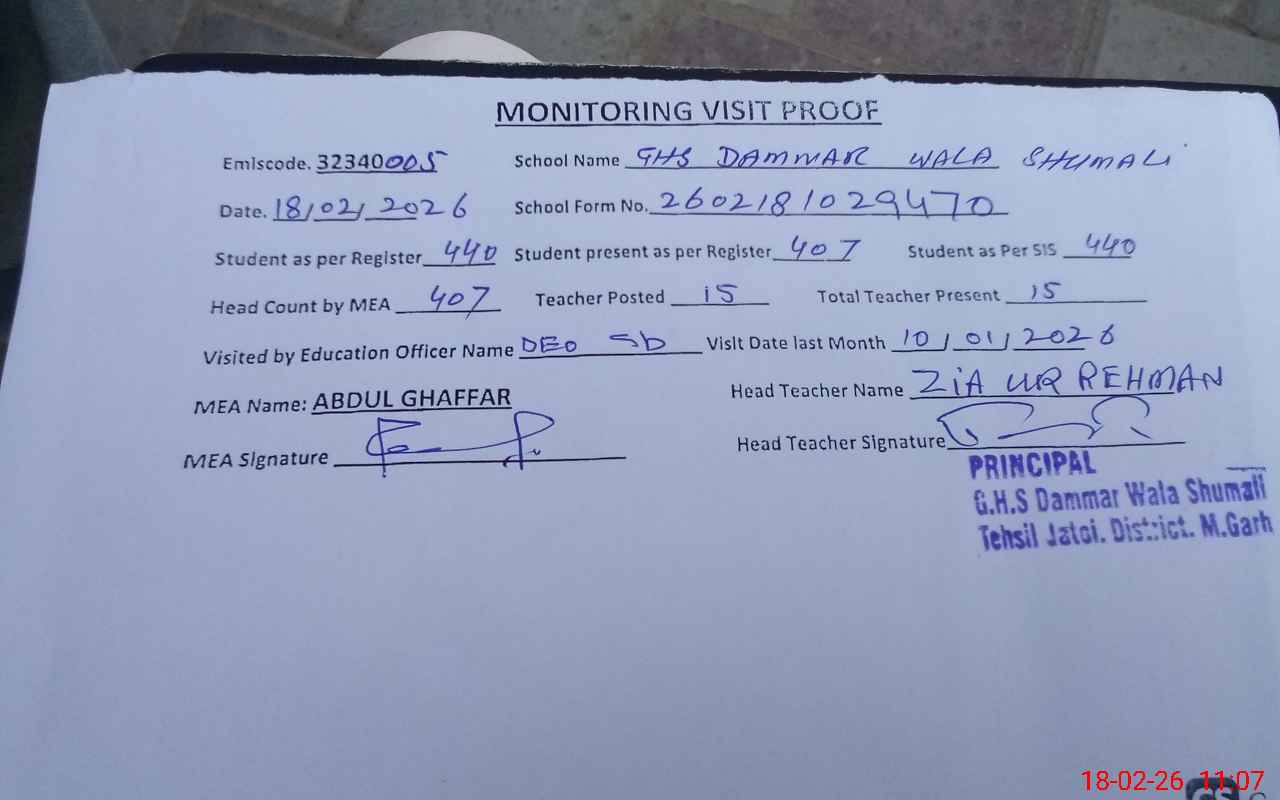 MONITORING VISIT PROOF
Emiscode. 32340005 School Name GHS DAMMAR WALA SHUMALI
Date. 18/02/2026 School Form No. 2602181029470
Student as per Register 440 Student present as per Register 407 Student as Per SIS 440
Head Count by MEA 407 Teacher Posted 15 Total Teacher Present 15
Visited by Education Officer Name DEO Sb Visit Date last Month 10/01/2026
MEA Name: ABDUL GHAFFAR Head Teacher Name ZIA UR REHMAN
MEA Signature Head Teacher Signature
PRINCIPAL
G.H.S Dammar Wala Shumali
Tehsil Jatoi. District. M.Garh
18-02-26 11:07